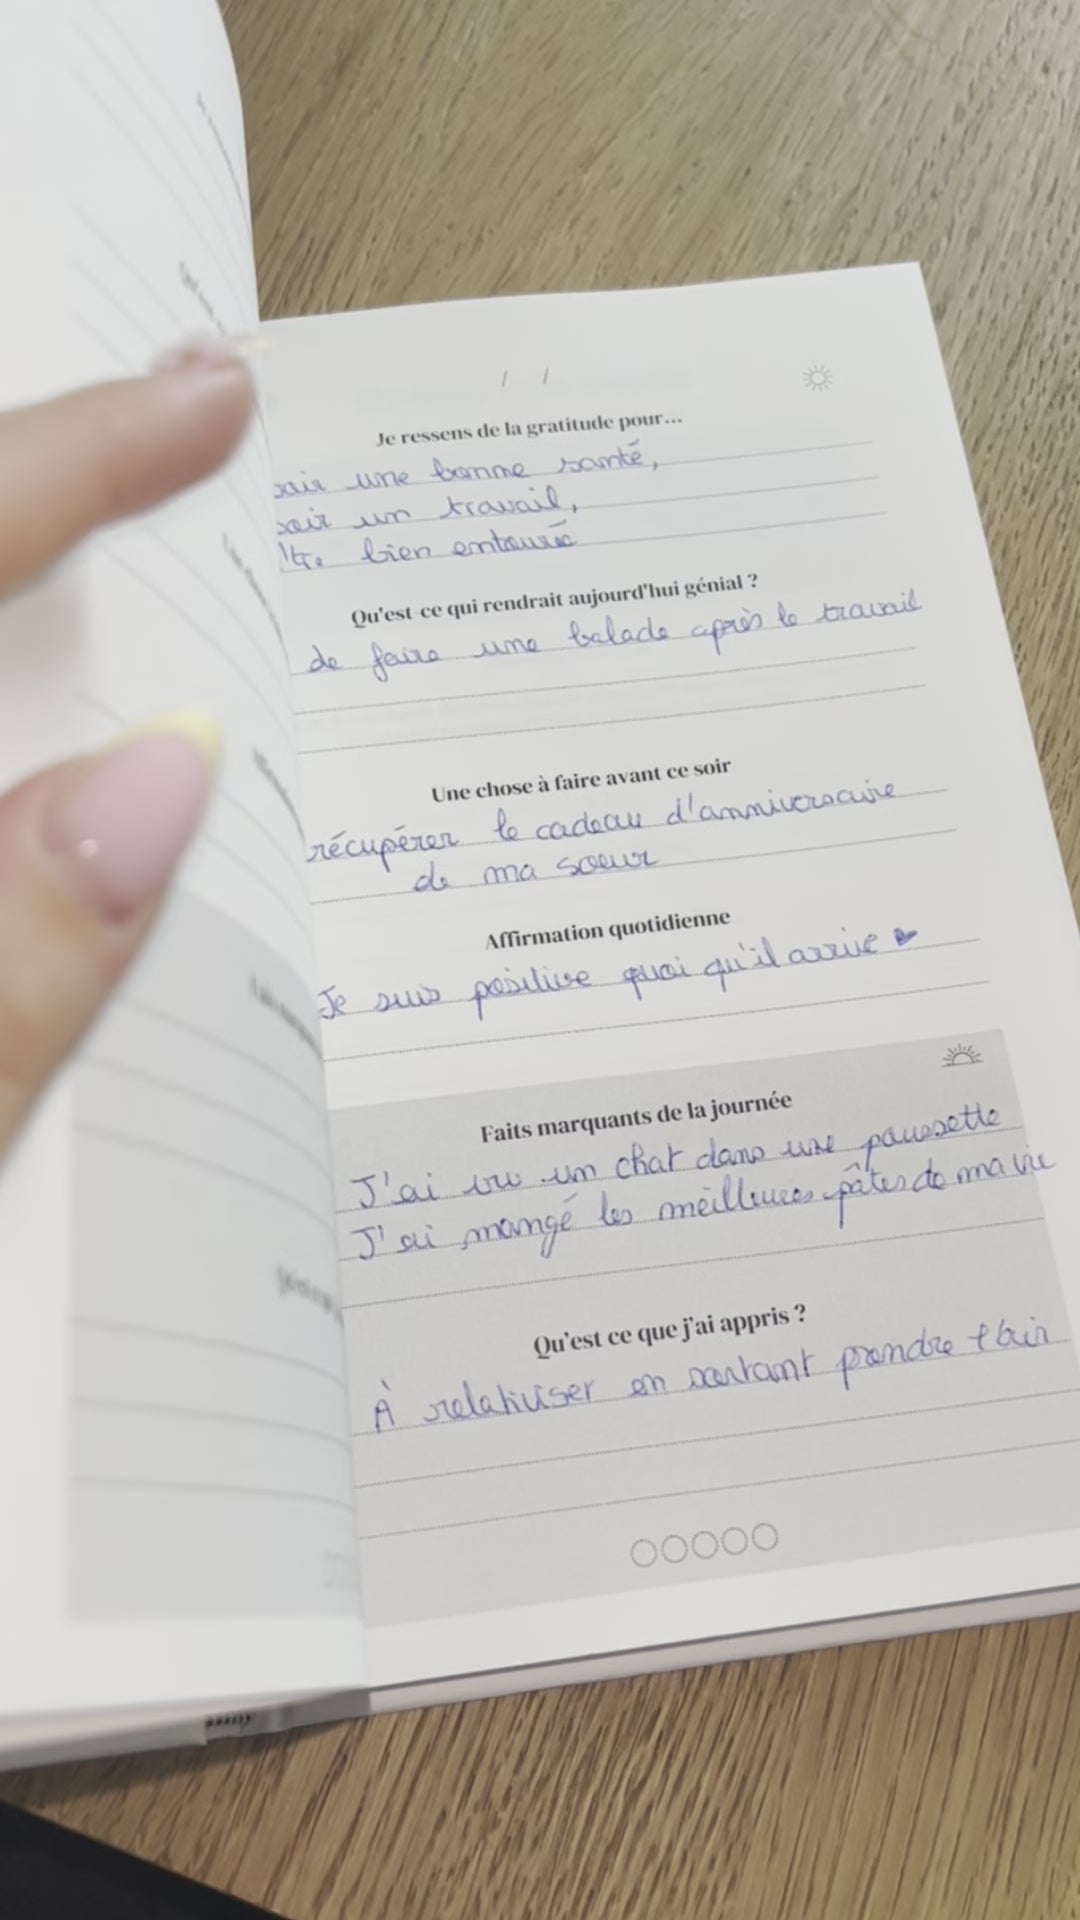 / /
Je ressens de la gratitude pour...
une bonne santé,
un travail,
bien entourée
Qu'est-ce qui rendrait aujourd'hui génial ?
de faire une balade après le travail
Une chose à faire avant ce soir
récupérer le cadeau d'anniversaire
de ma soeur
Affirmation quotidienne
Je suis positive quoi qu'il arrive
Faits marquants de la journée
J'ai vu un chat dans une poussette
J'ai mangé les meilleures pâtes de ma vie
Qu'est ce que j'ai appris ?
À relativiser en sortant prendre l'air